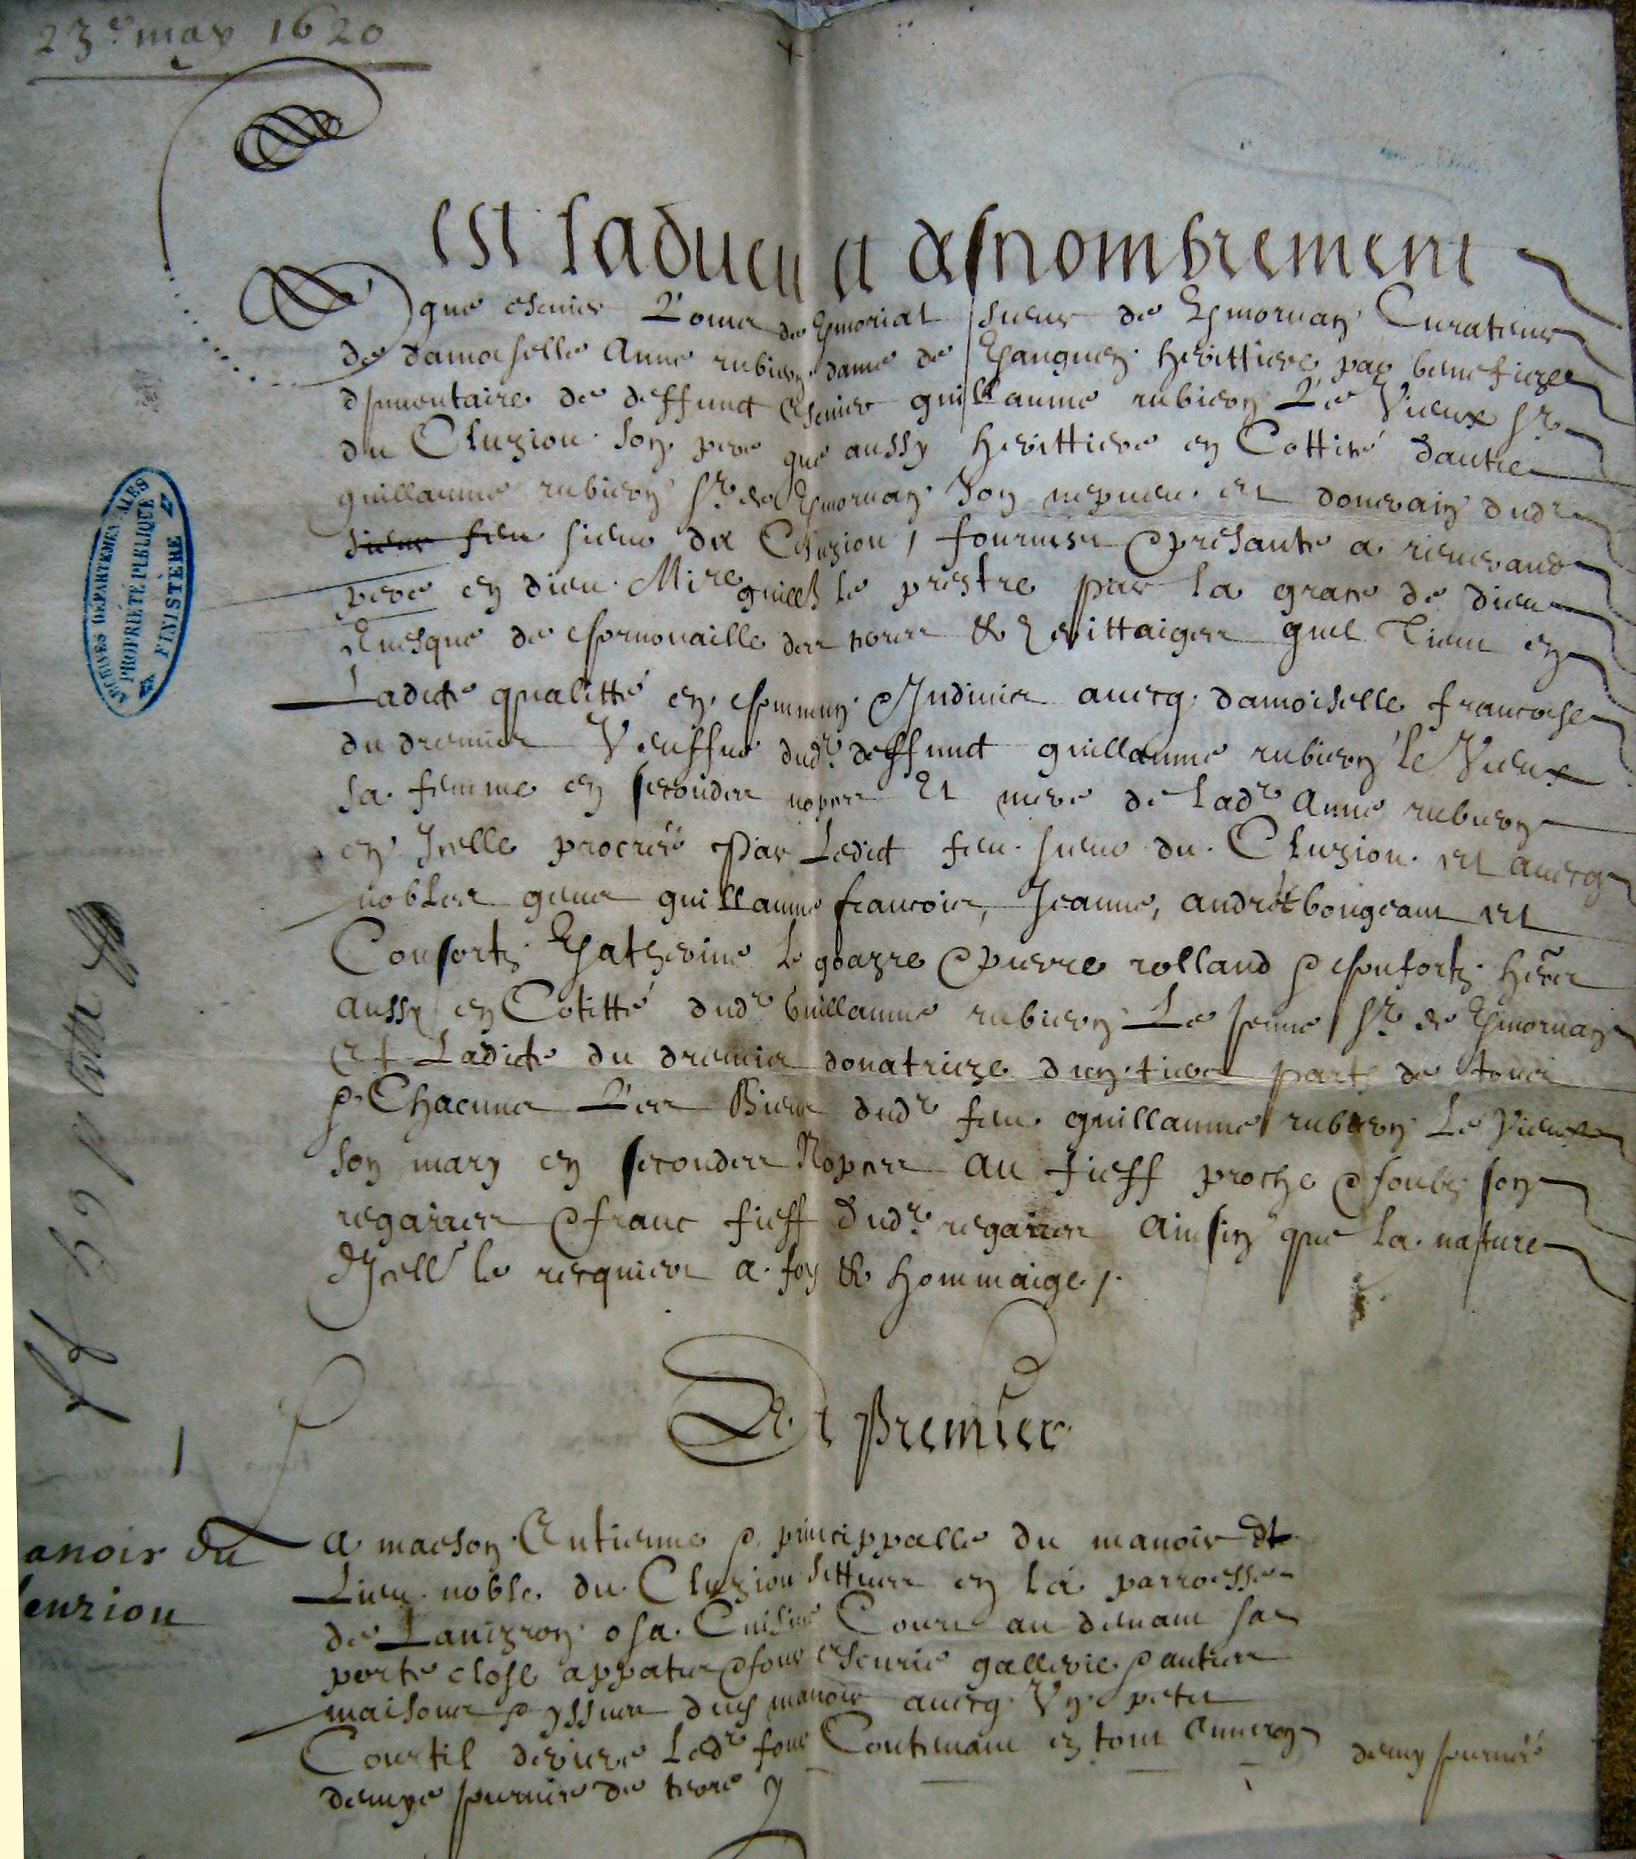 23e may 1620
est ladueu et desnombrement
que escuier Louis de Kmorial sieur de Kmoruan Curateur
de damoiselle Anne rubien dame de herittiere par beneficze
dinuentaire de deffunct escuier guillaume rubien Le Vieux sr
du Cluzion son pere que aussy herittiere en Cottité dautre
guillaume rubien sr de Kmoruan son nepueu et douerain dudt
sieur feu sieur du Cluzion, fournist et presante a reuerand
pere en dieu Mire guille le prestre par la grace de dieu
Euesque de Cornouaille des terres & herittaiges quel tient en
Ladicte qualitté en commun et Indiuis auecq damoiselle francoise
du drennier Veuffue dudt deffunct guillaume rubien le Vieux
sa femme en secondes nopces Et mere de ladt Anne rubien
en Icelle procréé Par Ledict feu sieur du Cluzion et auecq
nobles gens guillaume francois, Jeanne, andré bougeant et
Consorts Katherine Le goazre et pierre rolland et consorts hers
aussy en Cotitté dudt Guillaume rubien Le Jeune sr de Kmoruan
Et Ladicte du drenier donatricze dun tiers parts de tous
et Chacuns Les Biens dudt feu guillaume rubien Le Vieux
son mary en secondes Nopces au fieff proche et soubz son
regaires et franc fieff dudt regaires ainsin que la nature
dIcelle le requiert a foy & hommaige /.
ARCHIVES DEPARTEMENTALES
PROPRIÉTÉ PUBLIQUE
FINISTÈRE
Et Premier
1
anoir du
euzion
La maeson Antienne et princippalle du manoir et
Lieu noble du Cluzion sittuee en la parroesse
de Lanizron o sa Cuisine Court au deuant sa
porte close appatis et four escurie gallerie et autres
maisons et yssues dud manoir auecq Vn petit
Courtil deriere Ledt four Contenant en tout enuiron
demye journée de terre
demy journée